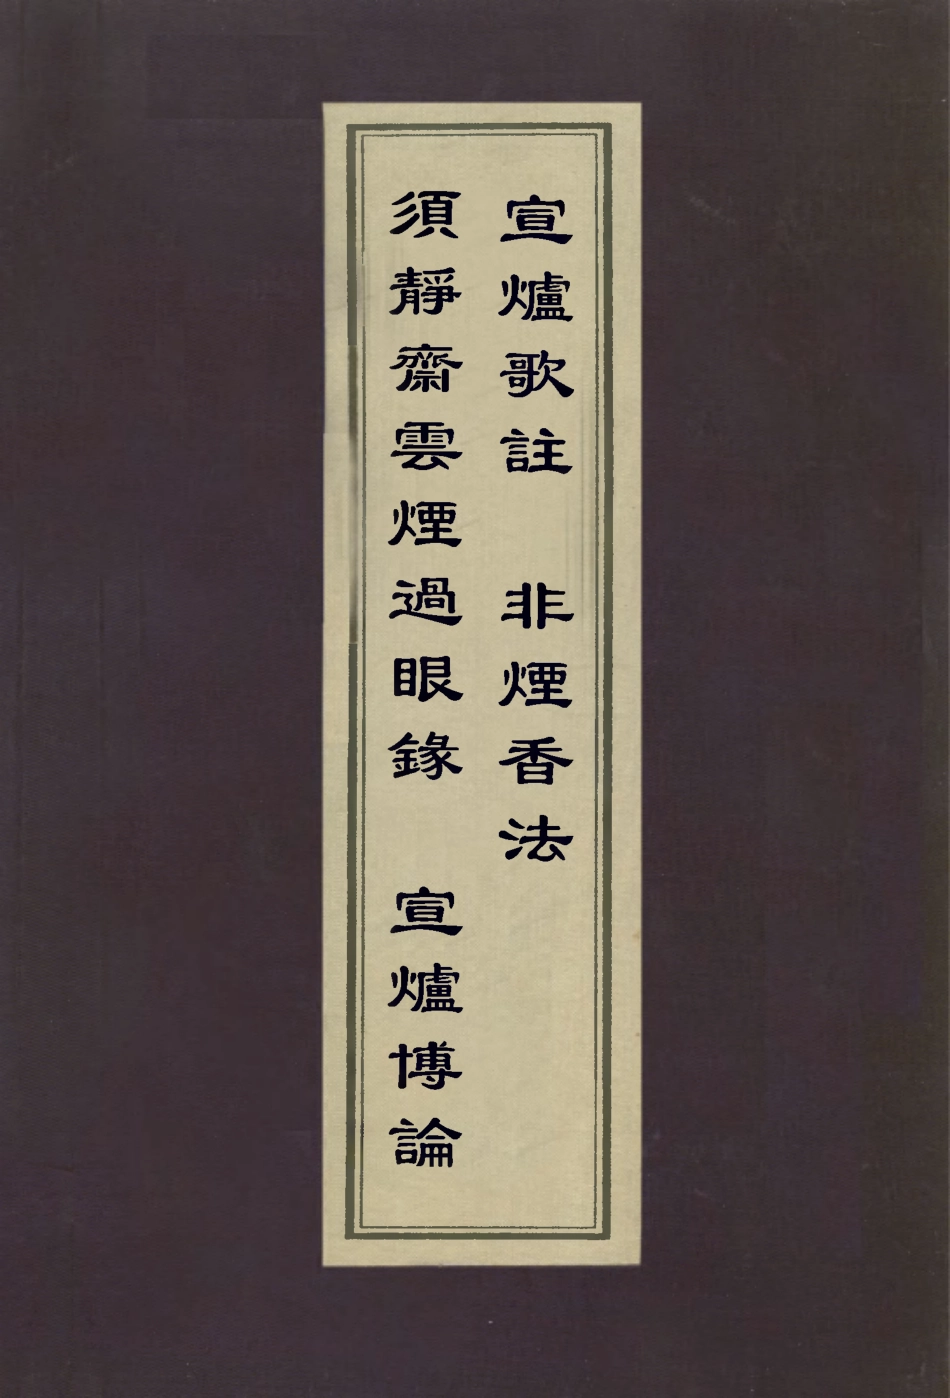 宣爐歌註　非煙香法
須靜齋雲煙過眼錄　宣爐博論